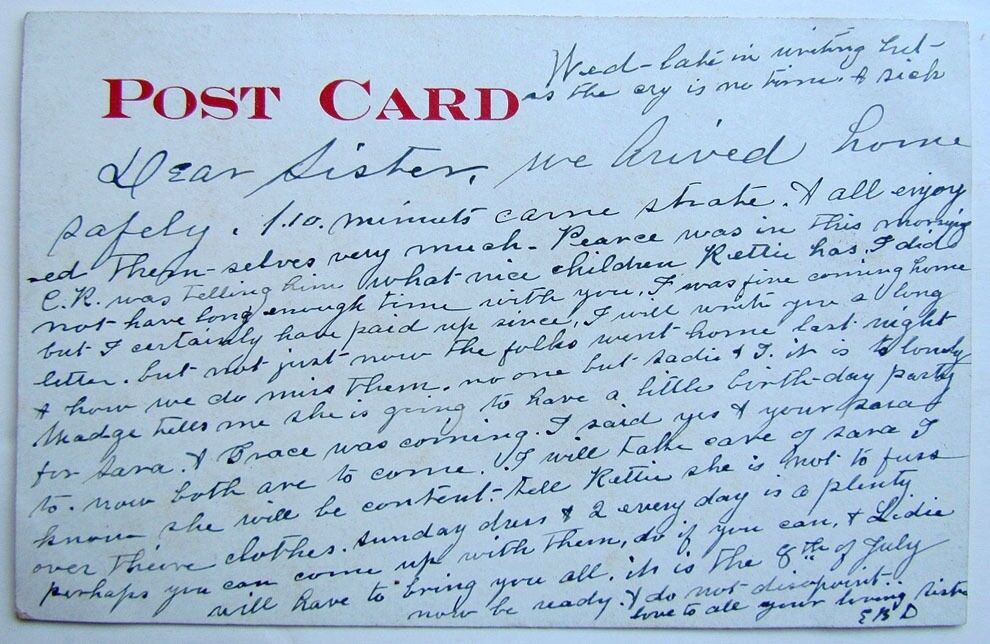 Wed - late in writing but-
as the cry is no time & sick
POST CARD
Dear Sister, we Arived home
safely. 1.10. minuts came strate. & all enjoy
-ed them-selves very much - Pearce was in this morning
C.R. was telling him what nice children Kettie has. I did
not have long enough time with you. I was fine coming home
but I certainly have paid up since, I will write you a long
letter. but not just now the folks went home last night
& how we do miss them. no one but Sadie & I. it is lonely
Madge tells me she is going to have a little birth-day party
for Sara. & Grace was coming. I said yes & your Sara
to. now both are to come. I will take care of Sara I
know she will be content - tell Kettie she is not to fuss
over theire clothes. Sunday dress & 2 every day is a plenty
perhaps you can come up with them, do if you can, & Lidie
will have to bring you all. it is the 8th of July
now be ready. & do not disapoint.
love to all your loving Siste
E B D